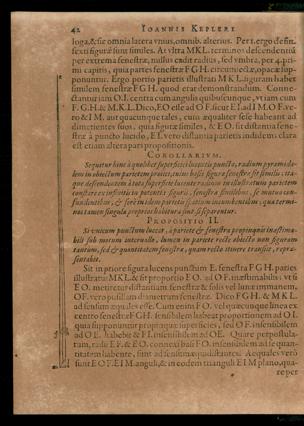 42 IOANNIS KEPLERI
loga, & sic omnia latera vnius, omnib. alterius. Per 1. ergo defin.
sexti figuræ sunt similes. At vltra M K L. terminos descendentiū
per extrema fenestræ, nullus cadit radius, sed vmbra, per 4. pri-
mi capitis, quia partes fenestræ F G H. circumiectæ, opacæ sup-
ponuntur. Ergo portio parietis illustrati M K L. figuram habet
similem fenestræ F G H. quod erat demonstrandum. Conne-
ctantur iam O I. centra cum angulis quibuscunque, vt tam cum
F G H. & M K L. Dico, esse ad O F. sicut E I. ad I M. O F. ve-
ro & I M. aut quæcunque tales, cum æqualiter sese habeant ad
dimetientes suos, quia figuræ similes, & E O. sit distantia fene-
stræ à puncto lucido, E I. vero distantia parietis indidem: clara
est etiam altera pars propositionis.
COROLLARIVM.
Sequitur hinc à quolibet superficiei lucentis puncto, radium pyramida-
lem in obiectum parietem proijci, cuius basis figuræ fenestræ sit similis, ita-
que descendentem à tota superficie lucente radium seu illustratum parietem
constare ex infinitis potentia figuris, fenestræ similibus, se mutuo con-
fundentibus, & ferè in eodem parietis spatio incumbentibus, quæ termi-
nos tamen singulæ proprios habituræ sint, si separentur.
PROPOSITIO II.
Si vnicum punctum luceat, à pariete & fenestra propinquis inæstima-
bili sub notum interuallo, lumen in pariete recte obiecto non figuram
tantum, sed & quantitatem fenestræ, quam recto itinere transit, repræ-
sentabit.
Sit in priore figura lucens punctum E. fenestra F G H. paries
illustratus M K L. & sit proportio E O. ad O F. inæstimabilis,
E O. metiretur distantiam fenestræ & solis vel lunæ immanem,
O F. vero pusillam diametrum fenestræ. Dico F G H. & M K L.
ad sensum æquales esse. Cum enim F O. vel quæcunque linea ex
centro fenestræ F G H. sensibilem habeat proportionem ad O I.
quia supponuntur propinquæ superficies, sed O F. insensibilem
ad O E. habebit & F I. insensibilem ad O E. Quare perpusilla-
tum, radij E F. & E O. connexi basi F O. insensibilem ad se quan-
titatem habente, sunt ad sensum æquidistantes. Æquales verò
sunt E O F. E I M. anguli, & in eodem triangulo E I M plano, qua-
re per